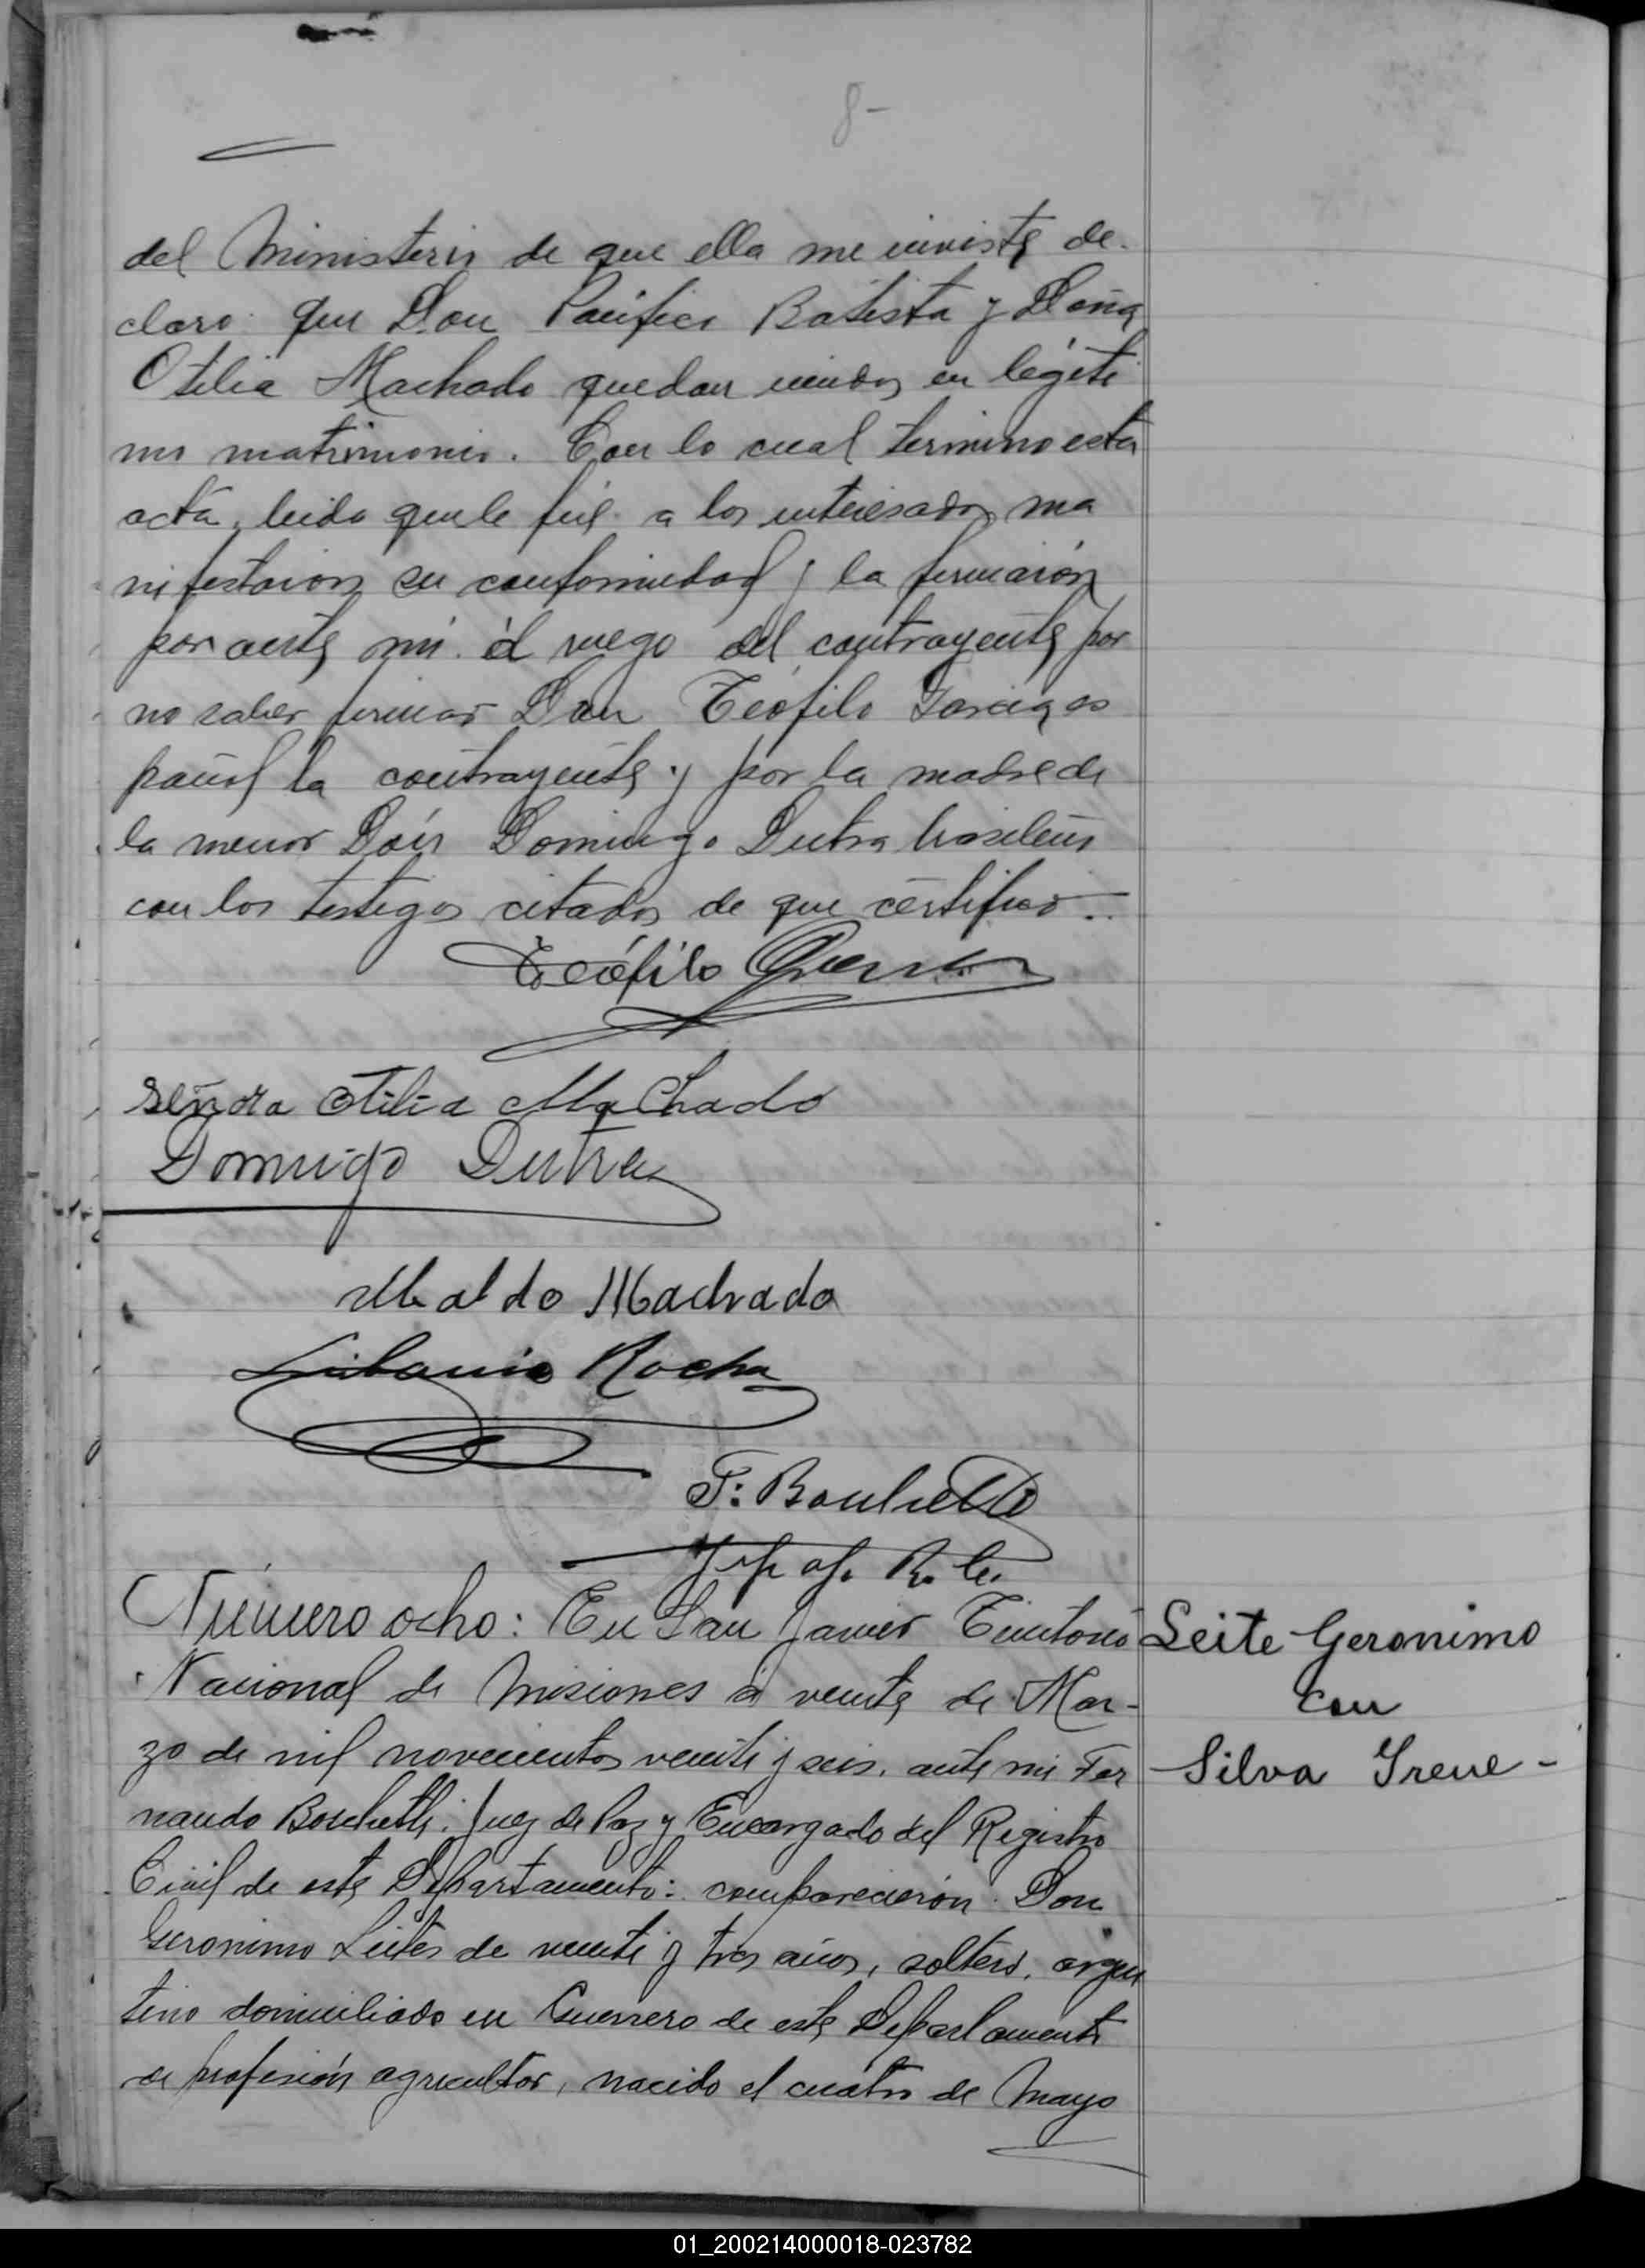 8-
del Ministerio de que ella me inviste de-
claro que Don Pacífico Batista y Doña
Otilia Machado quedan unidos en legíti
mo matrimonio. Con lo cual termino esta
acta, leida que le fué a los interesados ma
nifestaron su conformidad y la firmaron
por ante mi. á ruego del contrayente por
no saber firmar Don Teófilo es
pañol la contrayente y por la madre de
la menor Don Domingo Dutra brasileño
con los testigos citados de que certifico.
Teófilo
Señora Otilia Machado
Domingo Dutra
Machado
Libanio Rocha
F. Boschetti
Número ocho: En San Javier Territorio
Leite Geronimo
Nacional de Misiones á veinte de Mar-
con
zo de mil novecientos veinte y seis. ante mi Fer
Silva Irene -
nando Boschetti. Juez de Paz y Encargado del Registro
Civil de este Departamento: comparecieron Don
Geronimo Leites de veinte y tres años, soltero, argen
tino domiciliado en Guerrero de este Departamento
de profesión agricultor, nacido el cuatro de Mayo
01_200214000018-023782